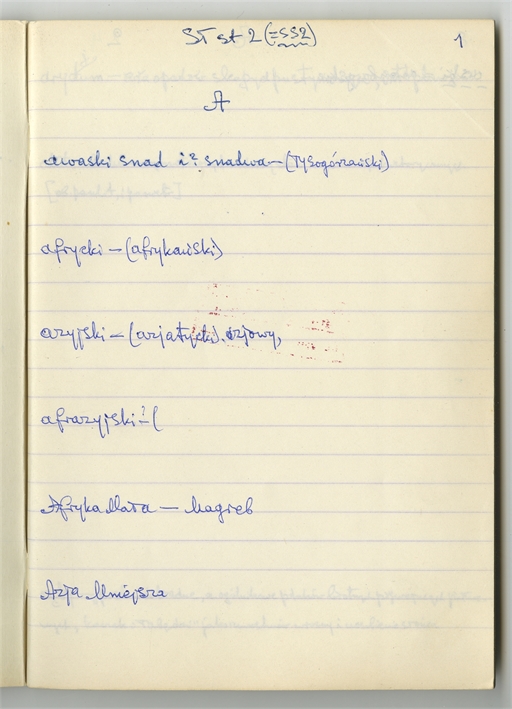 ST st 2 (=SS2) 1
A
awaski snad i? snadwa – (Tysogórzański)
afrycki – (afrykański)
azyjski – (azjatycki). azjowy,
afrazyjski?– (
Afryka Mała – Magreb
Azja Mniejsza